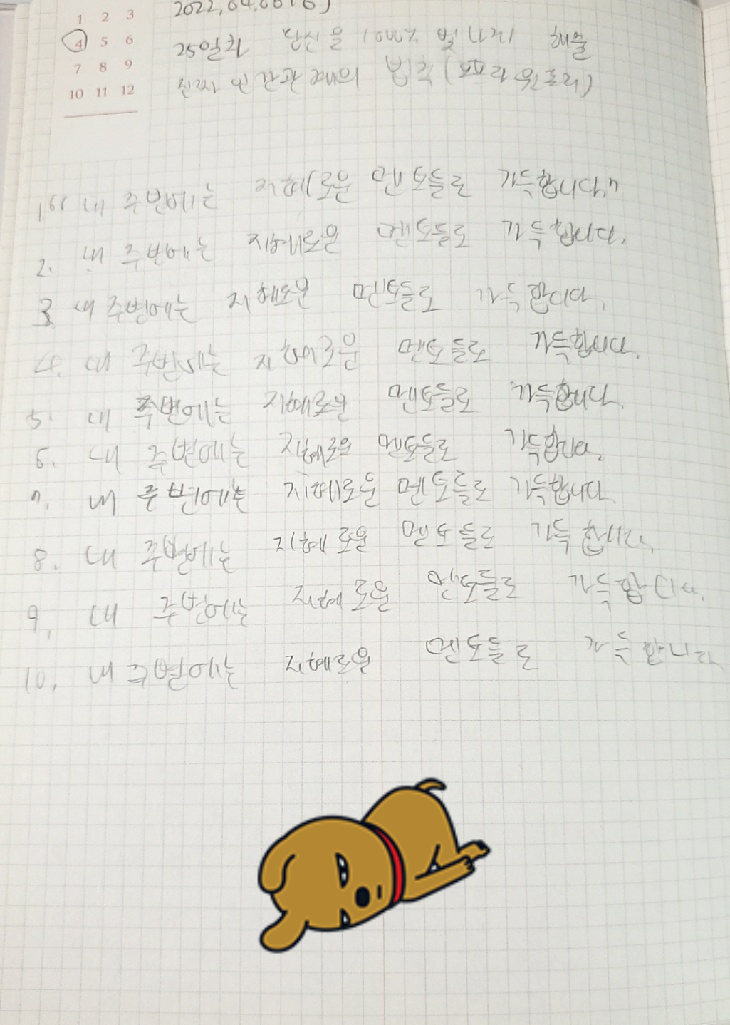 1 2 3
4 5 6
7 8 9
10 11 12
25일차 당신을 1000% 빛나게 해줄
진짜 인간관계의 법칙(오프라 윈프리)
1. "내 주변에는 지혜로운 멘토들로 가득합니다."
2. 내 주변에는 지혜로운 멘토들로 가득합니다.
3. 내 주변에는 지혜로운 멘토들로 가득합니다.
4. 내 주변에는 지혜로운 멘토들로 가득합니다.
5. 내 주변에는 지혜로운 멘토들로 가득합니다.
6. 내 주변에는 지혜로운 멘토들로 가득합니다.
7. 내 주변에는 지혜로운 멘토들로 가득합니다.
8. 내 주변에는 지혜로운 멘토들로 가득합니다.
9. 내 주변에는 지혜로운 멘토들로 가득합니다.
10. 내 주변에는 지혜로운 멘토들로 가득합니다